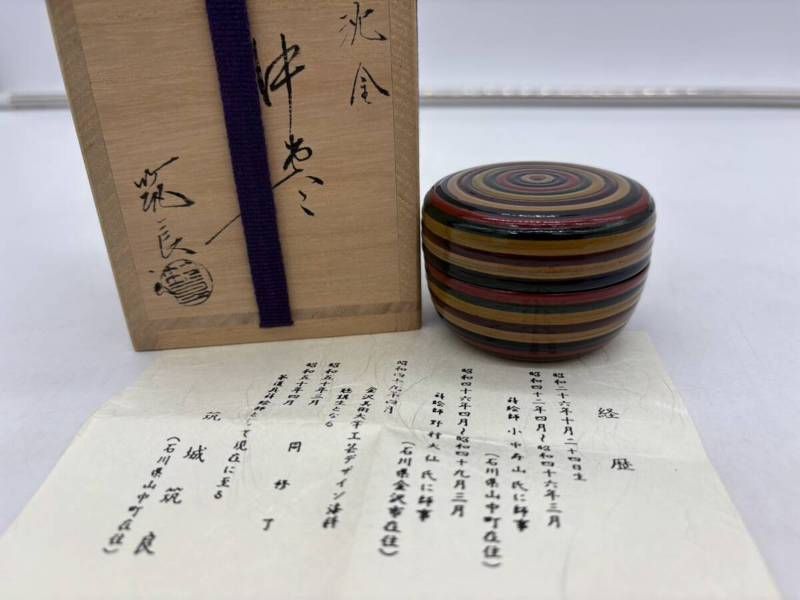 筑良
経歴
昭和二十六年十月二十四日生
昭和四十二年四月〜昭和四十六年三月
蒔絵師 小中寿山氏に師事
(石川県山中町在住)
昭和四十六年四月〜昭和四十九年三月
蒔絵師 野村大仙氏に師事
(石川県金沢市在住)
昭和四十九年四月
金沢美術大学工芸デザイン漆科
聴講生となる
昭和五十年三月
同修了
昭和五十年四月
茶道具蒔絵師として現在に至る
筑城筑良
(石川県山中町在住)